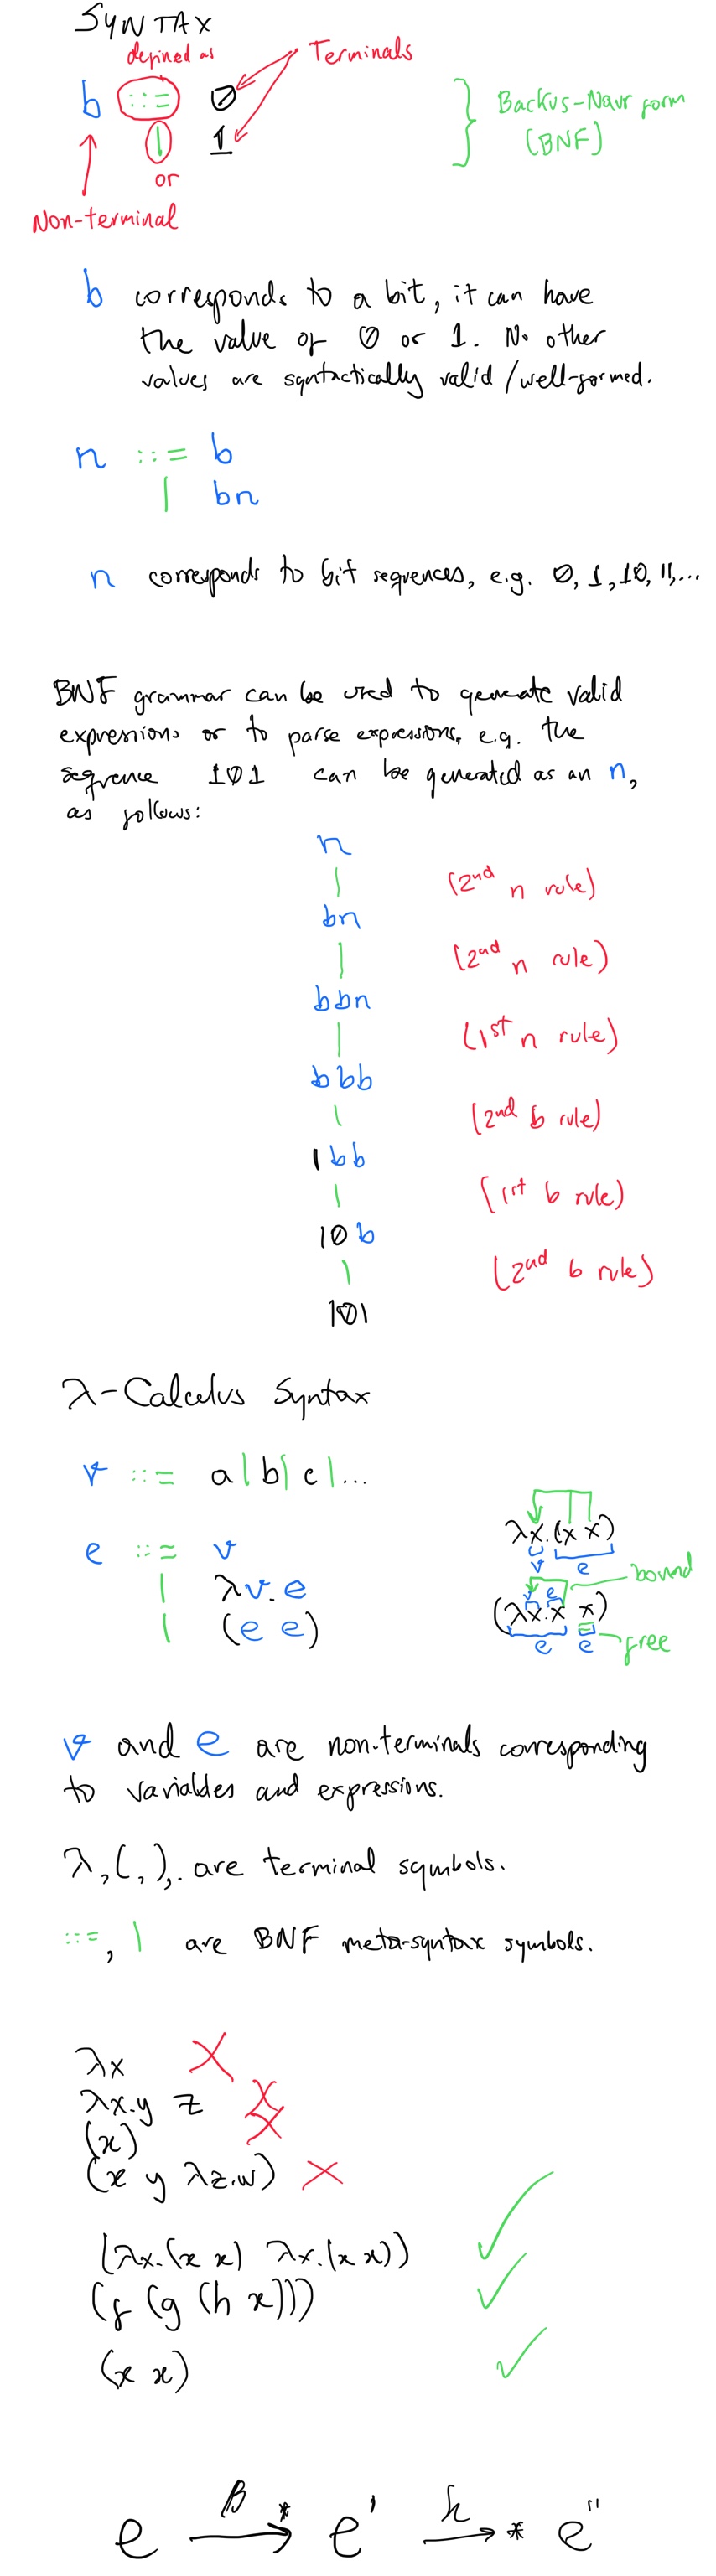 SYNTAX
defined as
Terminals
b ::= 0
| 1
or
Non-terminal
Backus-Naur form
(BNF)
b corresponds to a bit, it can have
the value of 0 or 1. No other
values are syntactically valid/well-formed.
n ::= b
| bn
n corresponds to bit sequences, e.g. 0, 1, 10, 11,...
BNF grammar can be used to generate valid
expressions or to parse expressions, e.g. the
sequence 101 can be generated as an n,
as follows:
n
| (2nd n rule)
bn
| (2nd n rule)
bbn
| (1st n rule)
bbb
| (2nd b rule)
1bb
| (1st b rule)
10b
| (2nd b rule)
101
λ-Calculus Syntax
v ::= a|b|c|...
e ::= v
| λv.e
| (e e)
λx.(x x)
v e
bound
v e
(λx.x x)
e e free
v and e are non-terminals corresponding
to variables and expressions.
λ,(,),. are terminal symbols.
::=, | are BNF meta-syntax symbols.
λx X
λx.y z X
(x) X
(x y λz.w) X
(λx.(x x) λx.(x x)) ✓
(f (g (h x))) ✓
(x x) ✓
e β→* e' h→* e''